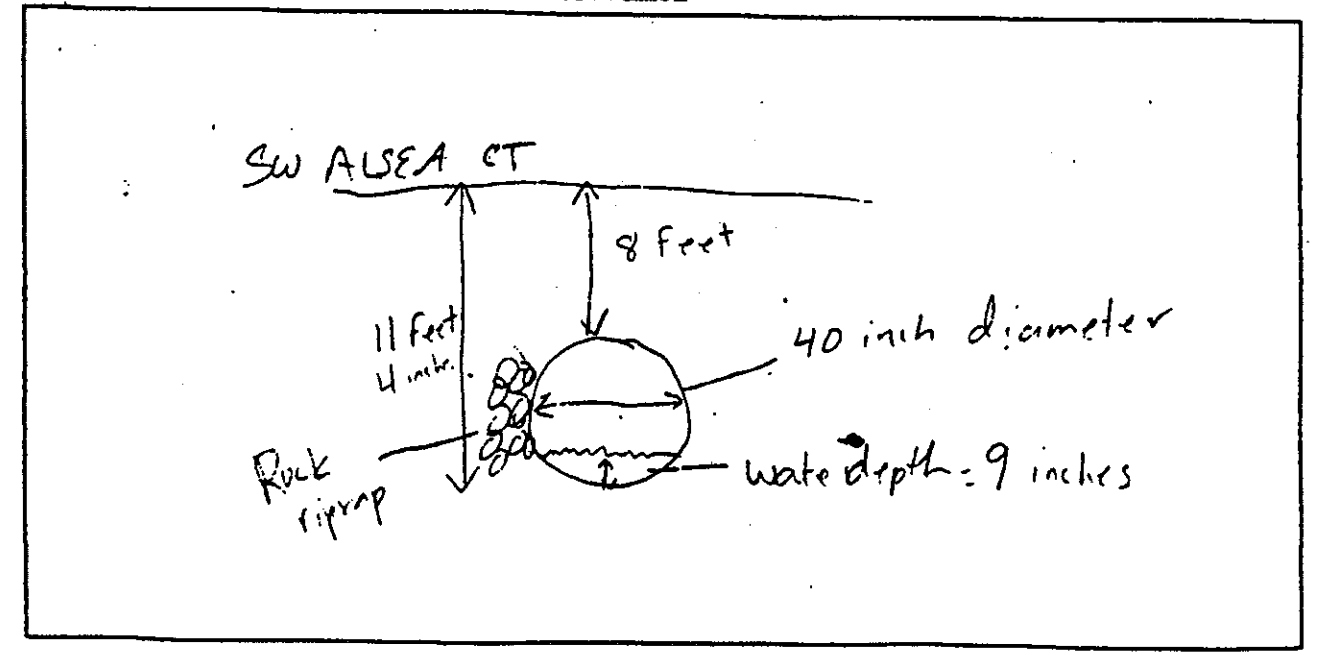 SW ALSEA CT
8 feet
11 feet
4 inche.
40 inch diameter
Rock
riprap
wate depth = 9 inches